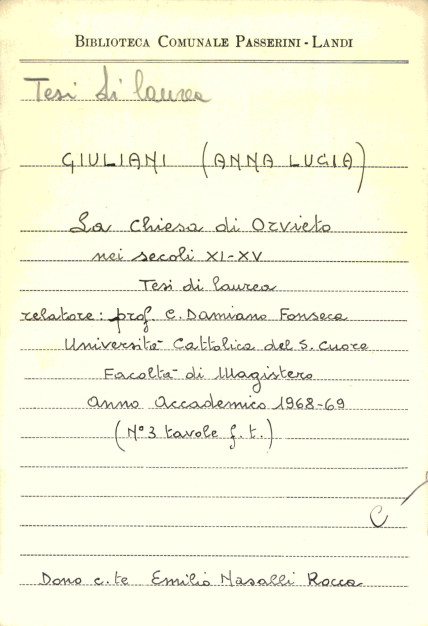 BIBLIOTECA COMUNALE PASSERINI - LANDI
Tesi di laurea
GIULIANI (ANNA LUCIA)
La Chiesa di Orvieto
nei secoli XI-XV
Tesi di laurea
relatore: prof. C. Damiano Fonseca
Università Cattolica del S. Cuore
Facoltà di Magistero
Anno Accademico 1968-69
(N° 3 tavole f. t.)
C
Dono c.te Emilio Nasalli Rocca